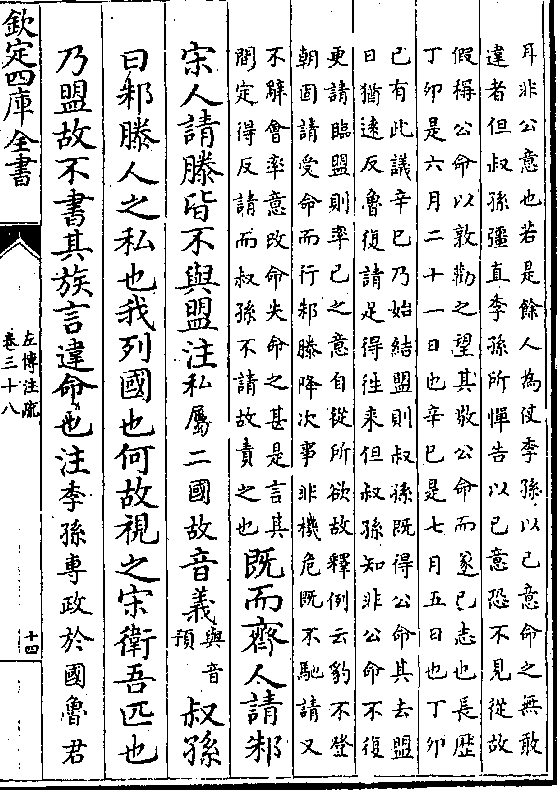 耳非公意也若是餘人為使季孫以己意命之無敢
違者但叔孫彊直季孫所憚告以己意恐不見從故
假稱公命以敦勸之望其敬公命而遂己志也長歴
丁卯是六月二十一日也辛巳是七月五日也丁卯
已有此議辛巳乃始結盟則叔孫既得公命其去盟
日猶逺反魯復請足得徃来但叔孫知非公命不復
更請臨盟則率己之意自從所欲故釋例云豹不登
朝固請受命而行邾滕降次事非機危既不馳請又
不辭會率意改命失命之甚是言其
間定得反請而叔孫不請故責之也
既而齊人請邾
宋人請滕皆不與盟注私屬二國故音義與音預叔孫
曰邾滕人之私也我列國也何故視之宋衛吾匹也
乃盟故不書其族言違命也注季孫專政於國魯君
欽定四庫全書
左傳注疏
卷三十八
十四